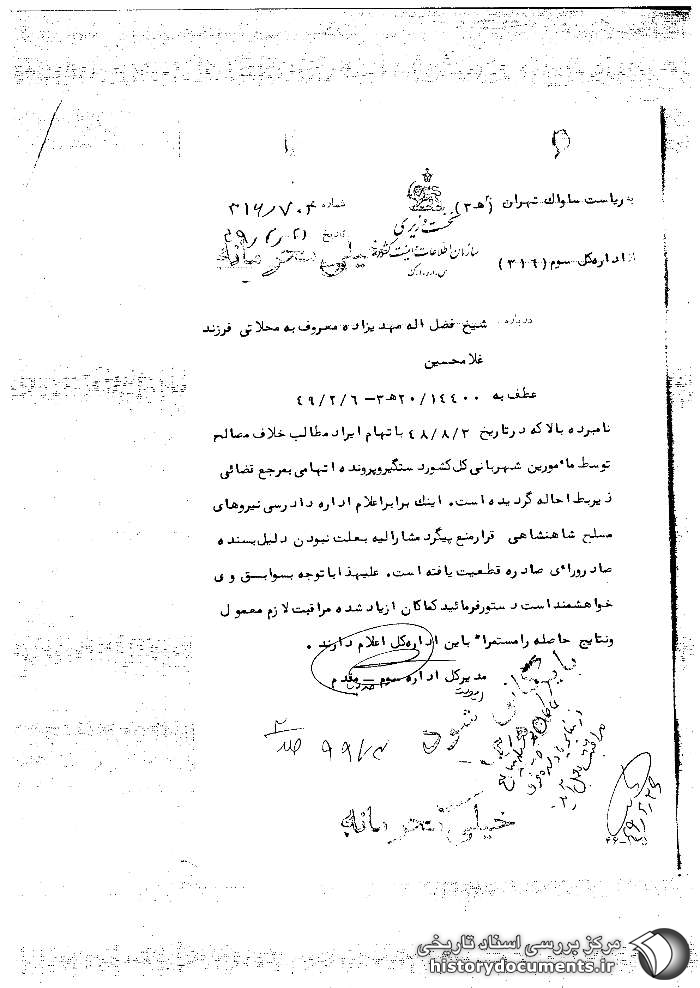 به ریاست ساواک تهران (۳هـ)
از اداره کل سوم (۳۱۶)
نخست وزیری
سازمان اطلاعات و امنیت کشور
س.ا.و.ا.ک
شماره ۳۱۶/۷۰۴
تاریخ
خیلی محرمانه
درباره شیخ فضل اله مهدیزاده معروف به محلاتی فرزند
غلامحسین
عطف به ۲۰/۱۴۴۰۰هـ۳-۴۹/۲/۶
نامبرده بالا که در تاریخ ۴۸/۸/۲ باتهام ایراد مطالب خلاف مصالح
توسط مأمورین شهربانی کل کشور دستگیر و پرونده اتهامی بمرجع قضائی
ذیربط احاله گردیده است. اینک برابر اعلام اداره دادرسی نیروهای
مسلح شاهنشاهی قرار منع پیگرد مشارالیه بعلت نبودن دلیل بسنده
صادر و رأی صادره قطعیت یافته است. علیهذا با توجه بسوابق وی
خواهشمند است دستور فرمائید کماکان از یاد شده مراقبت لازم معمول
و نتایج حاصله را مستمراً باین اداره کل اعلام دارند.
مدیر کل اداره سوم - مقدم
شود
خیلی محرمانه
مرکز بررسی اسناد تاریخی
historydocuments.ir